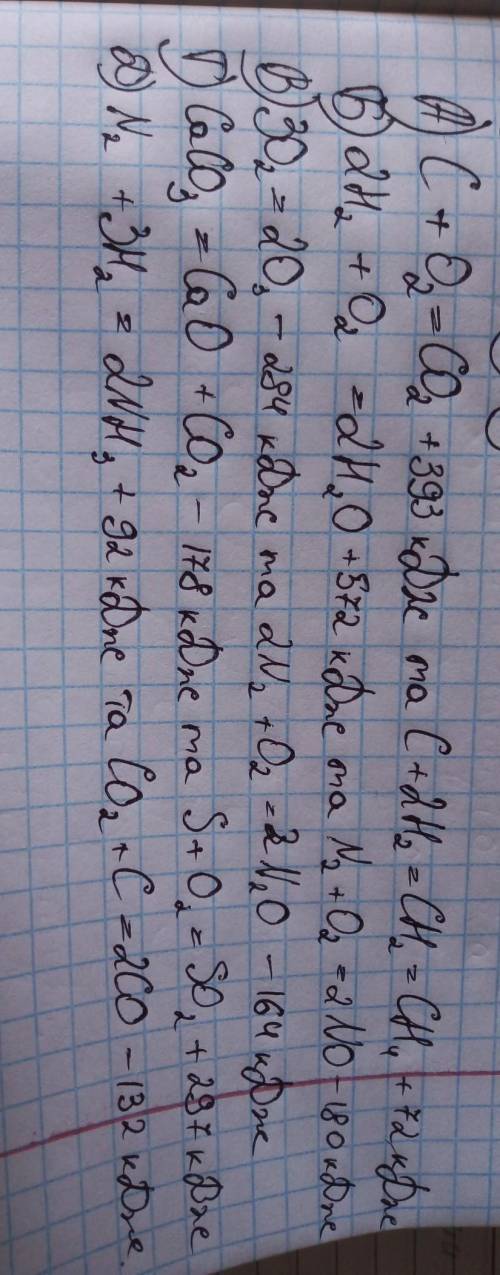 А) C + O₂ = CO₂ + 393 кДж та C + 2H₂ = CH₂ = CH₄ + 72 кДж
Б) 2H₂ + O₂ = 2H₂O + 572 кДж та N₂ + O₂ = 2NO - 180 кДж
В) 3O₂ = 2O₃ - 284 кДж та 2N₂ + O₂ = 2N₂O - 164 кДж
Г) CaCO₃ = CaO + CO₂ - 178 кДж та S + O₂ = SO₂ + 297 кДж
Д) N₂ + 3H₂ = 2NH₃ + 92 кДж та CO₂ + C = 2CO - 132 кДж.